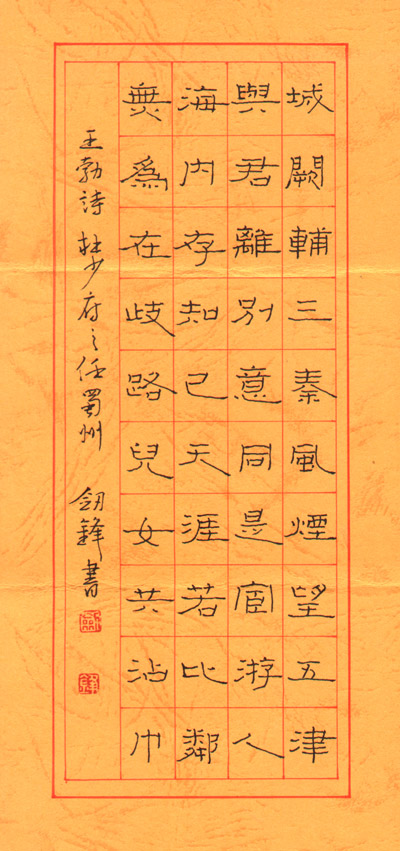 城闕輔三秦風煙望五津
與君離別意同是宦游人
海内存知己天涯若比鄰
無為在歧路兒女共沾巾
王勃詩 杜少府之任蜀州 劒鋒書